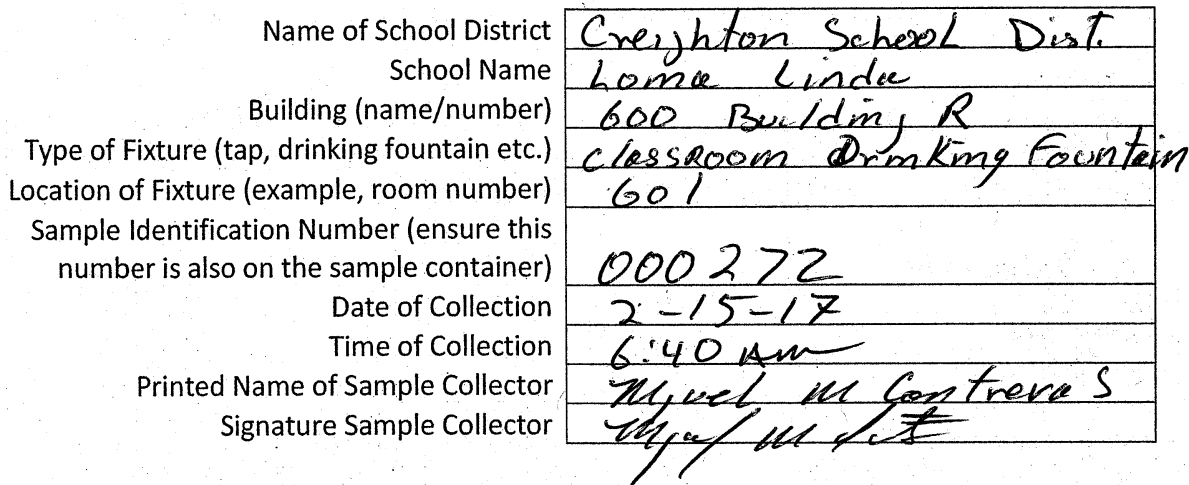 Name of School District Creighton School Dist.
School Name Loma Linda
Building (name/number) 600 Building R
Type of Fixture (tap, drinking fountain etc.) classroom Drinking Fountain
Location of Fixture (example, room number) 601
Sample Identification Number (ensure this
number is also on the sample container) 000272
Date of Collection 2-15-17
Time of Collection 6:40 AM
Printed Name of Sample Collector Miguel M Contreras
Signature Sample Collector